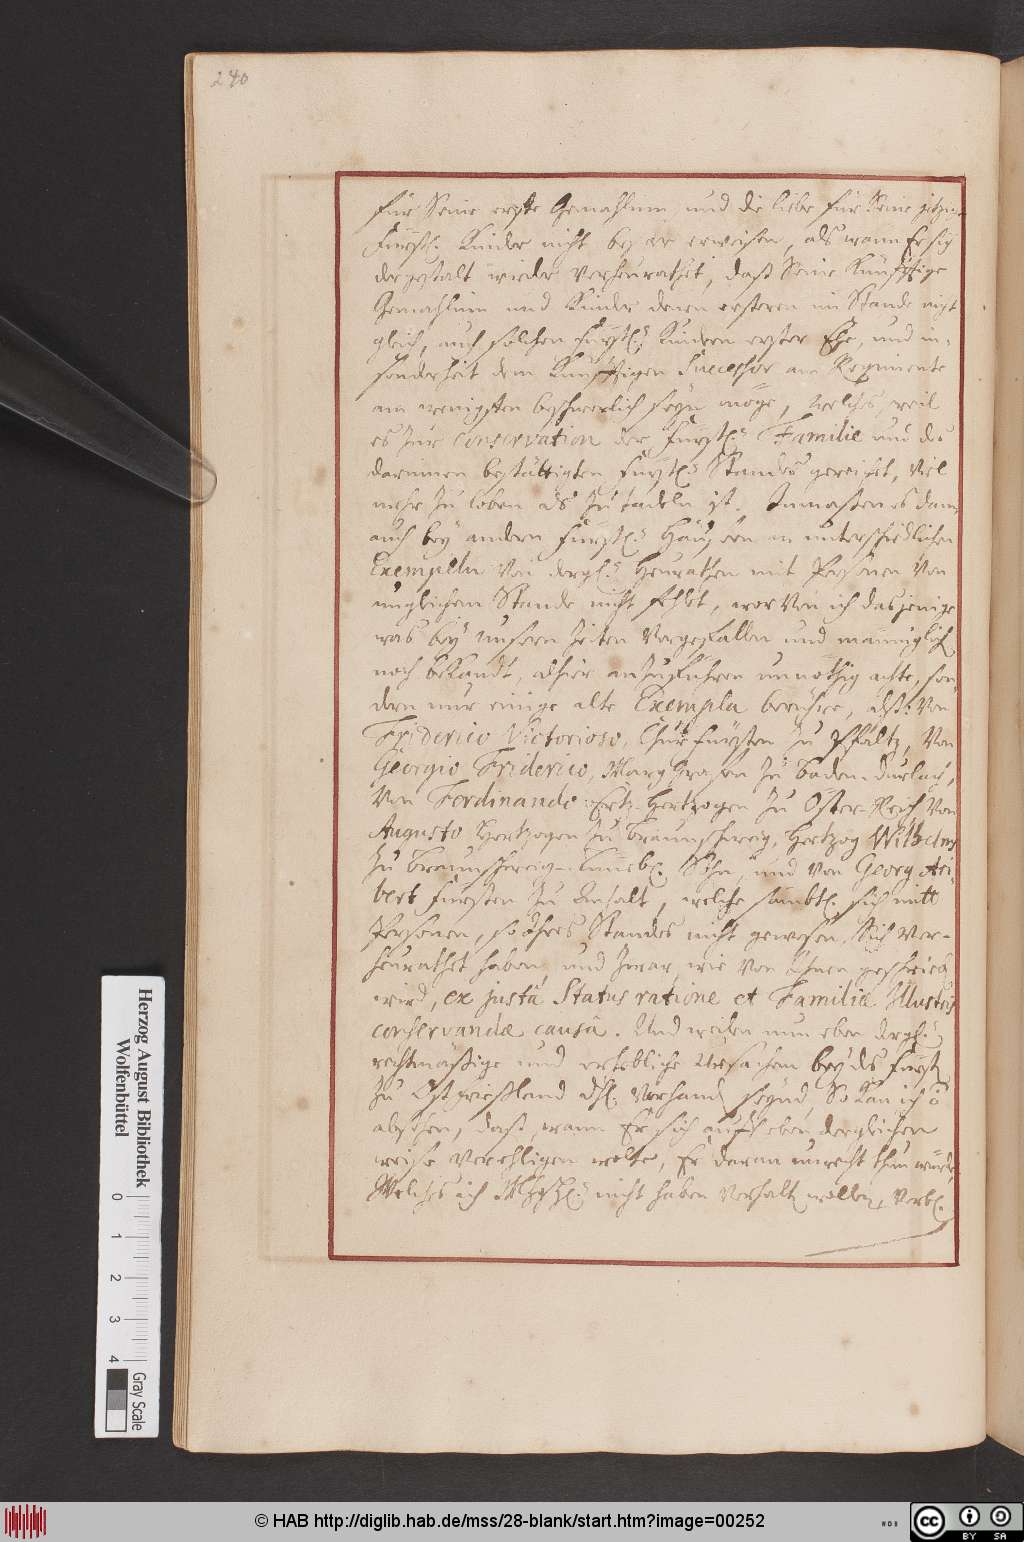 240
für Seine erste Gemahlinn und die liebe für Seine jetzige
Fürstl. Kinder nicht beßer erweisen, als wann Er sich
dergestalt wieder verheurathet, daß Seine Künfftige
Gemahlinn und Kinder denen ersteren im Stande nicht
gleich, auch solchen fürstl. Kindern erster Ehe, und in-
sonderheit dem Künfftigen Successor am Regimente
am wenigsten beschwerlich seyn möge, welches, weil
es zur conservation der Fürstl. Familie und des
darinnen bestättigten Fürstl. Standes gereichet, viel
mehr zu loben als zu tadeln ist. Inmaßen es dann
auch bey andern Fürstl. Häusern an unterschiedlichen
Exempeln von dergl. Heurathen mit Persohnen von
unglichem Stande nicht fehlet, worvon ich dasjenige
was bey unsern Zeiten vorgefallen und männiglich
noch bekandt, alhier anzuführen unnöthig achte, son-
dern nur einige alte Exempla berühre, alß: Von
Friderico Victorioso, Churfürsten zu Pfaltz, Von
Georgio Friderico, Marggrafen zu Baden-Durlach,
Von Ferdinando Ertz-Hertzogen zu Öster-Reich Von
Augusto Hertzogen zu Braunschweig, Hertzog Wilhelms
zu Braunschweig-Lüneb. Sohn, und von Georg Ari-
bert Fürsten zu Anhalt, welche sambtl. sich mitt
Persohnen, so Ihres Standes nicht gewesen, Sich ver-
heurathet haben, und zwar, wie von Ihnen geschrieb
wird, ex justâ Status ratione et Familiæ Illustris
conservandæ causâ. Und weilen nun eben dergl.
rechtmäßige und erhebliche Ursachen bey des Fürst
zu Ostfrießland Dhl. Vorhand seynd, So kan ich
absehen, daß, wann Er sich auf eben dergleichen
weise verehligen wolte, Er daran unrecht thun würde,
Welches ich nicht haben verhalt wollen, Verbl.
Herzog August Bibliothek
Wolfenbüttel
0 1 2 3 4
Gray Scale
© HAB http://diglib.hab.de/mss/28-blank/start.htm?image=00252
WDB
CC BY SA